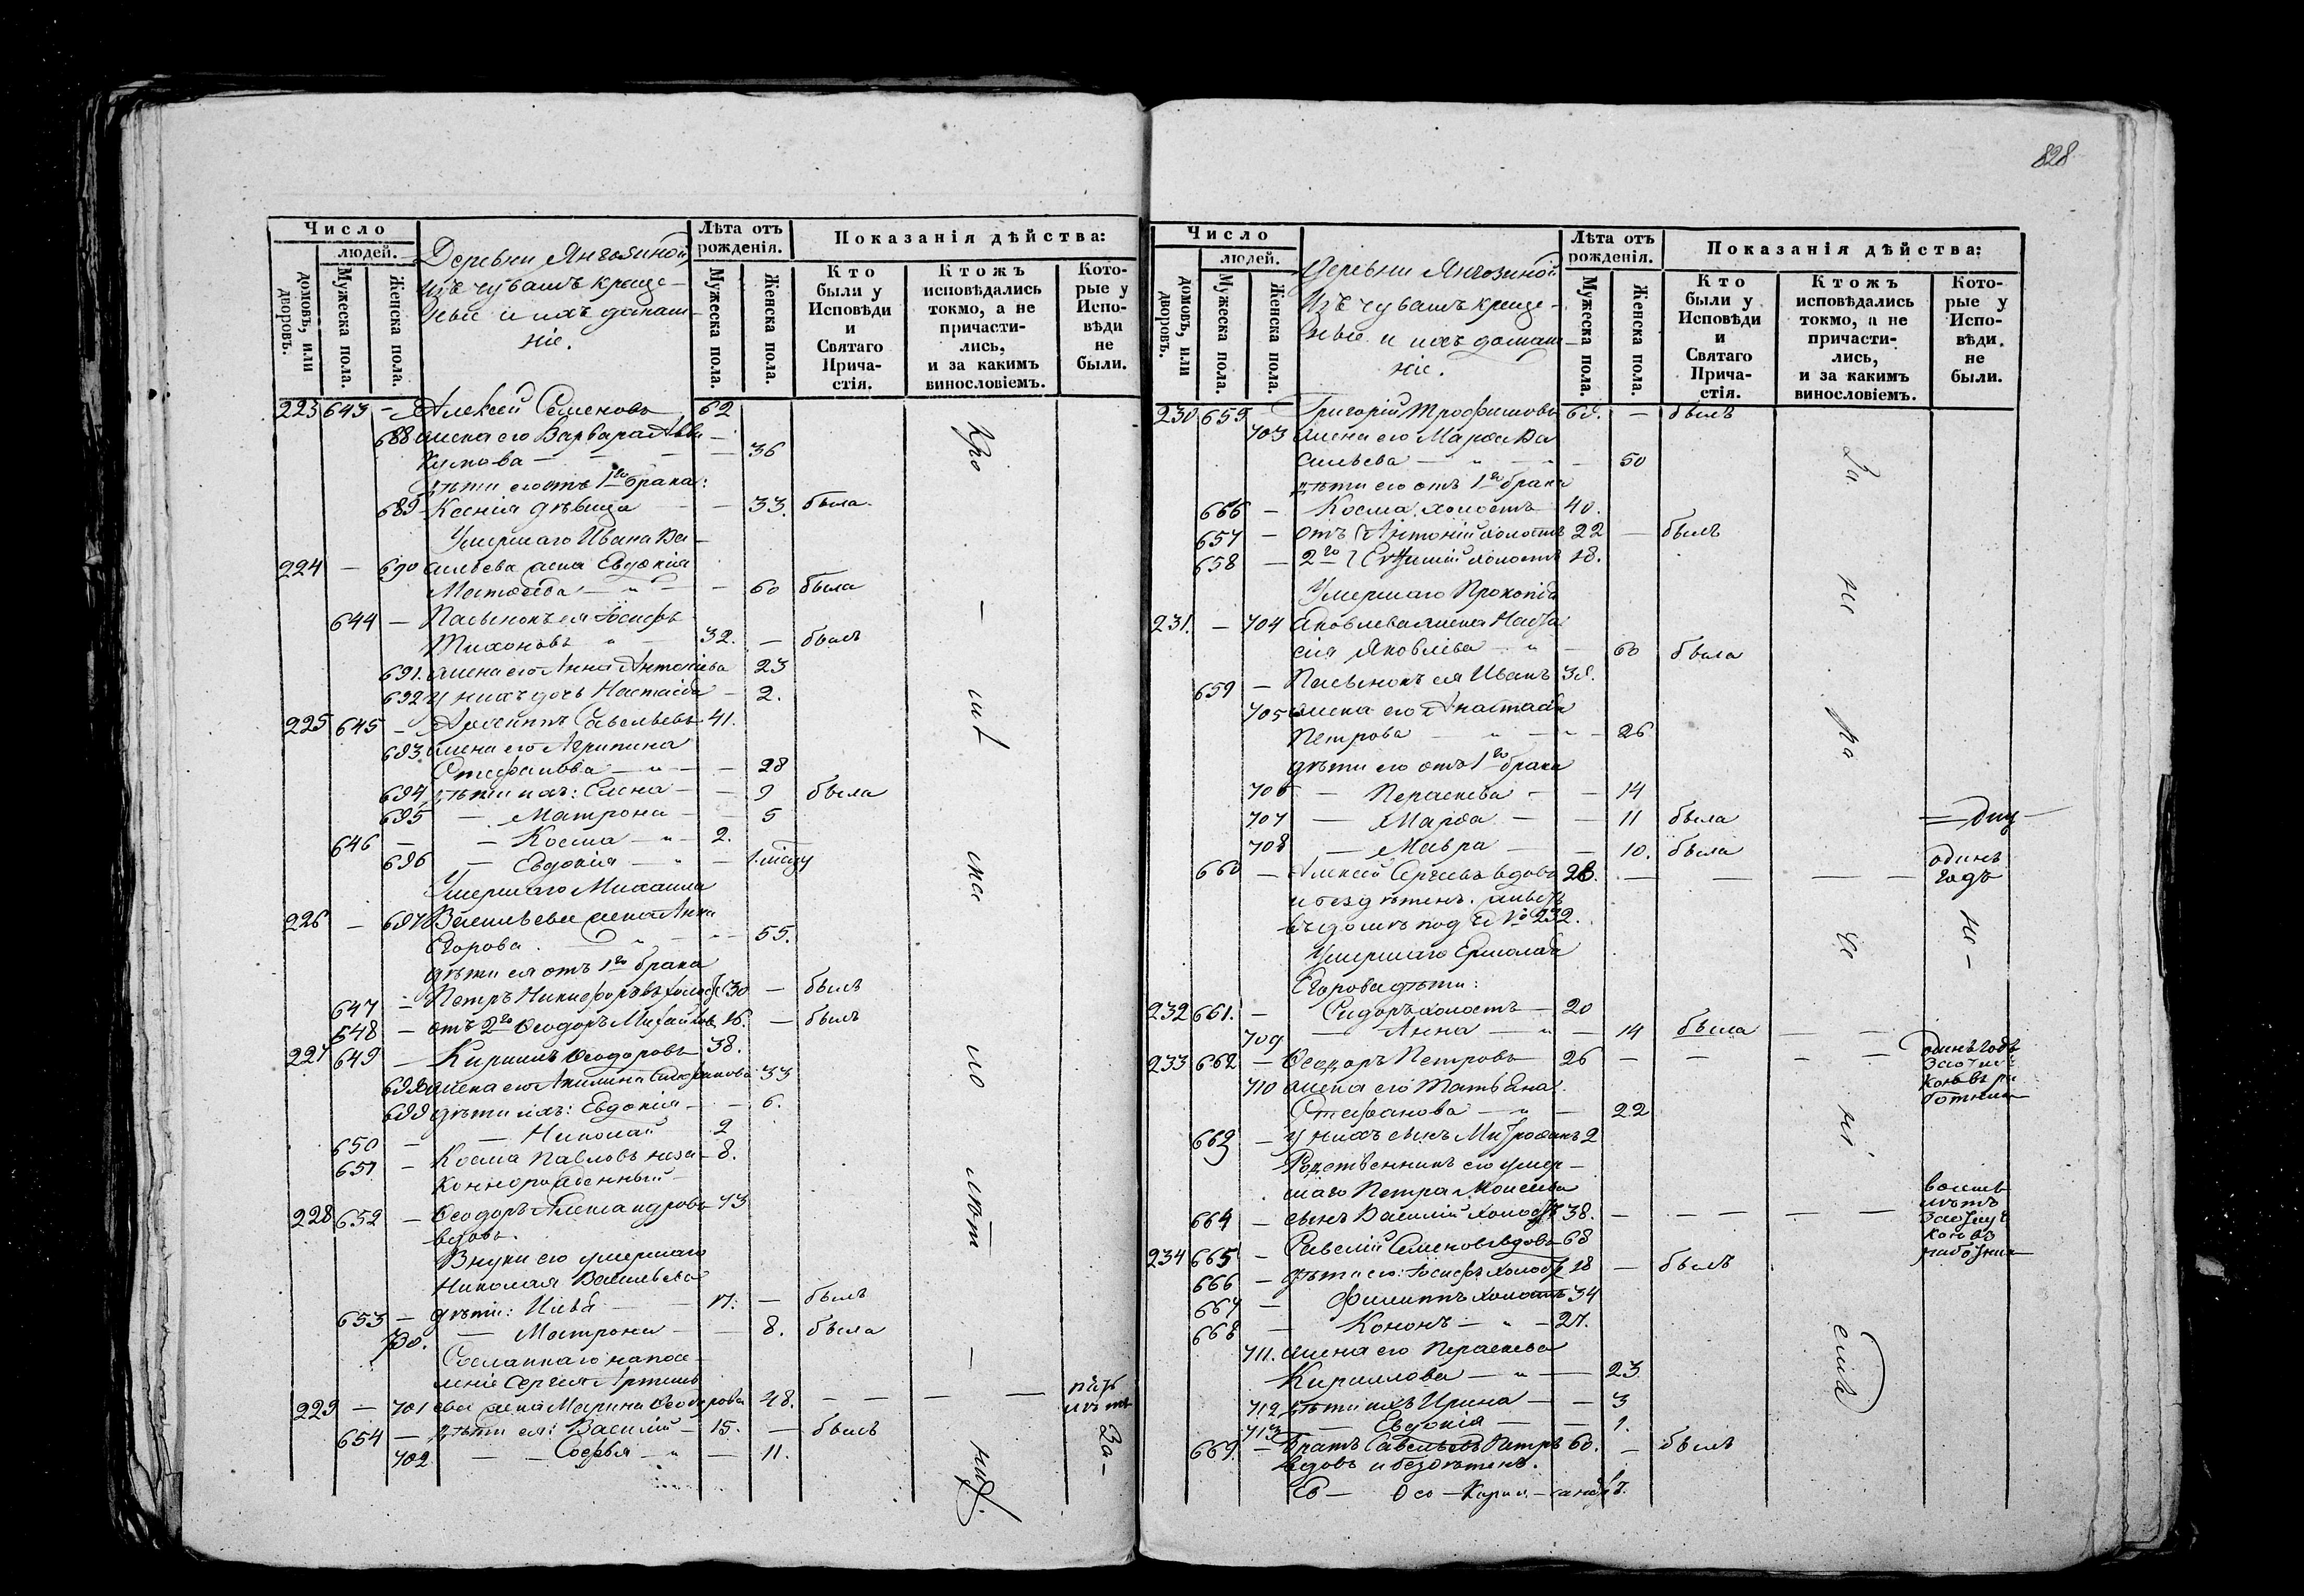 828
Число
людей.
домовъ, или дворовъ.
Мужеска пола.
Женска пола.
Деревни Янгозиной
Изъ чувашъ креще-
ные и ихъ домаш-
ніе.
Лѣта отъ рожденія.
Мужеска пола.
Женска пола.
Показанія дѣйства:
Кто были у Исповѣди и Святаго Прича-стія.
Ктожъ исповѣдались токмо, а не причасти-лись, и за какимъ винословіемъ.
Кото-рые у Испо-вѣди не были.
223 643 - Алексѣй Семеновъ 62
688 жена его Варвара
- - - 36
дѣти его отъ 1го брака:
689 Ксенія дѣвица - 33. была
Умершаго Ивана Ва-
224 - 690 сильева жена Евдокія
Матвеева - 60 была
644 - Пасынокъ ея Іосифъ
Тихоновъ 32. - былъ
691. жена его Анна 23
692 у нихъ дочь Настасья - 2.
225 645 - Савельевъ 41.
693 жена его Агрипина
Стефанова - 28
694 дѣти ихъ: Елена - 9 была
695 - Матрона - 5
646 - Косма - 2.
696 - Евдокія -
Умершаго Михаила
226 - 697 Васильева жена Анна
Егорова. - 55.
дѣти ея отъ 1го брака
647 - Петръ Никифоровъ холостъ 30 - былъ
648 - отъ 2го Ѳеодоръ Михайловъ 16. - былъ
227 649 - Кириллъ Ѳеодоровъ 38.
698 жена его Акилина Стефанова 33
699 дѣти ихъ: Евдокія - 6.
650 - Николай 2
651 - Косма Павловъ неза- 8.
коннорожденный
228 652 - Ѳеодоръ Александровъ 73
вдовъ.
Внуки его умершаго
Николая Васильева
653 - дѣти: Илья - 17. - былъ
700. - Матрона - 8. была
Сосланнаго на посе-
леніе Сергея Артемь-
229 - 701 ева жена Марина Ѳеодорова 48. - - - - пять лѣтъ
654 - дѣти ея: Василій - 15. - былъ
702 - Софья - 11.
За-
Число
людей.
домовъ, или дворовъ.
Мужеска пола.
Женска пола.
Деревни Янгозиной
Изъ чувашъ креще-
ные и ихъ домаш-
ніе.
Лѣта отъ рожденія.
Мужеска пола.
Женска пола.
Показанія дѣйства:
Кто были у Исповѣди и Святаго Прича-стія.
Ктожъ исповѣдались токмо, а не причасти-лись, и за какимъ винословіемъ.
Кото-рые у Испо-вѣди не были.
230 655 Григорій Трофимовъ 68. - былъ
703 жена его Марѳа Ва
сильева - 50
дѣти его отъ 1го брака
656 - Косма холостъ 40.
657 - отъ Антоній холостъ 22 - былъ
658 - 2го Евѳимій холостъ 18.
Умершаго Прокопія
231. - 704 Яковлева жена Наста
сія Яковлева - 60 была
659 - Пасынокъ ея Иванъ 38.
705 жена его Анастасія
Петрова - 26
дѣти его отъ 1го брака
706 - Пераскева - 14
707 - Марѳа - 11 была
708 - Мавра - 10. была
660 - Алексѣй Сергеевъ вдовъ 28. - - - - одинъ годъ
и бездѣтенъ. живетъ
въ домѣ подъ № 232.
Умершаго Ермолая
Егорова дѣти:
232 661. - Сидоръ холостъ - 20
709 - Анна - 14 была
233 662 - Ѳеодоръ Петровъ 26 - - - - одинъ годъ
710 жена его Татьяна
Стефанова - 22
663 - у нихъ сынъ Митрофанъ 2
Родственникъ его умер-
шаго Петра Моисеева
664 - сынъ Василій холостъ 38. - - - - - восемь лѣтъ
234 665 - Савелій Семеновъ вдовъ 68
666 - дѣти его: Іосифъ холостъ 18 - былъ
667 - Филиппъ холостъ 34
668 - Кононъ - 27.
711. жена его Пераскева
Кириллова - 23
712 дѣти ихъ Ирина - 3
713 - Евдокія - 1.
669. - Братъ Савельевъ Петръ 60. - былъ
вдовъ и бездѣтенъ.